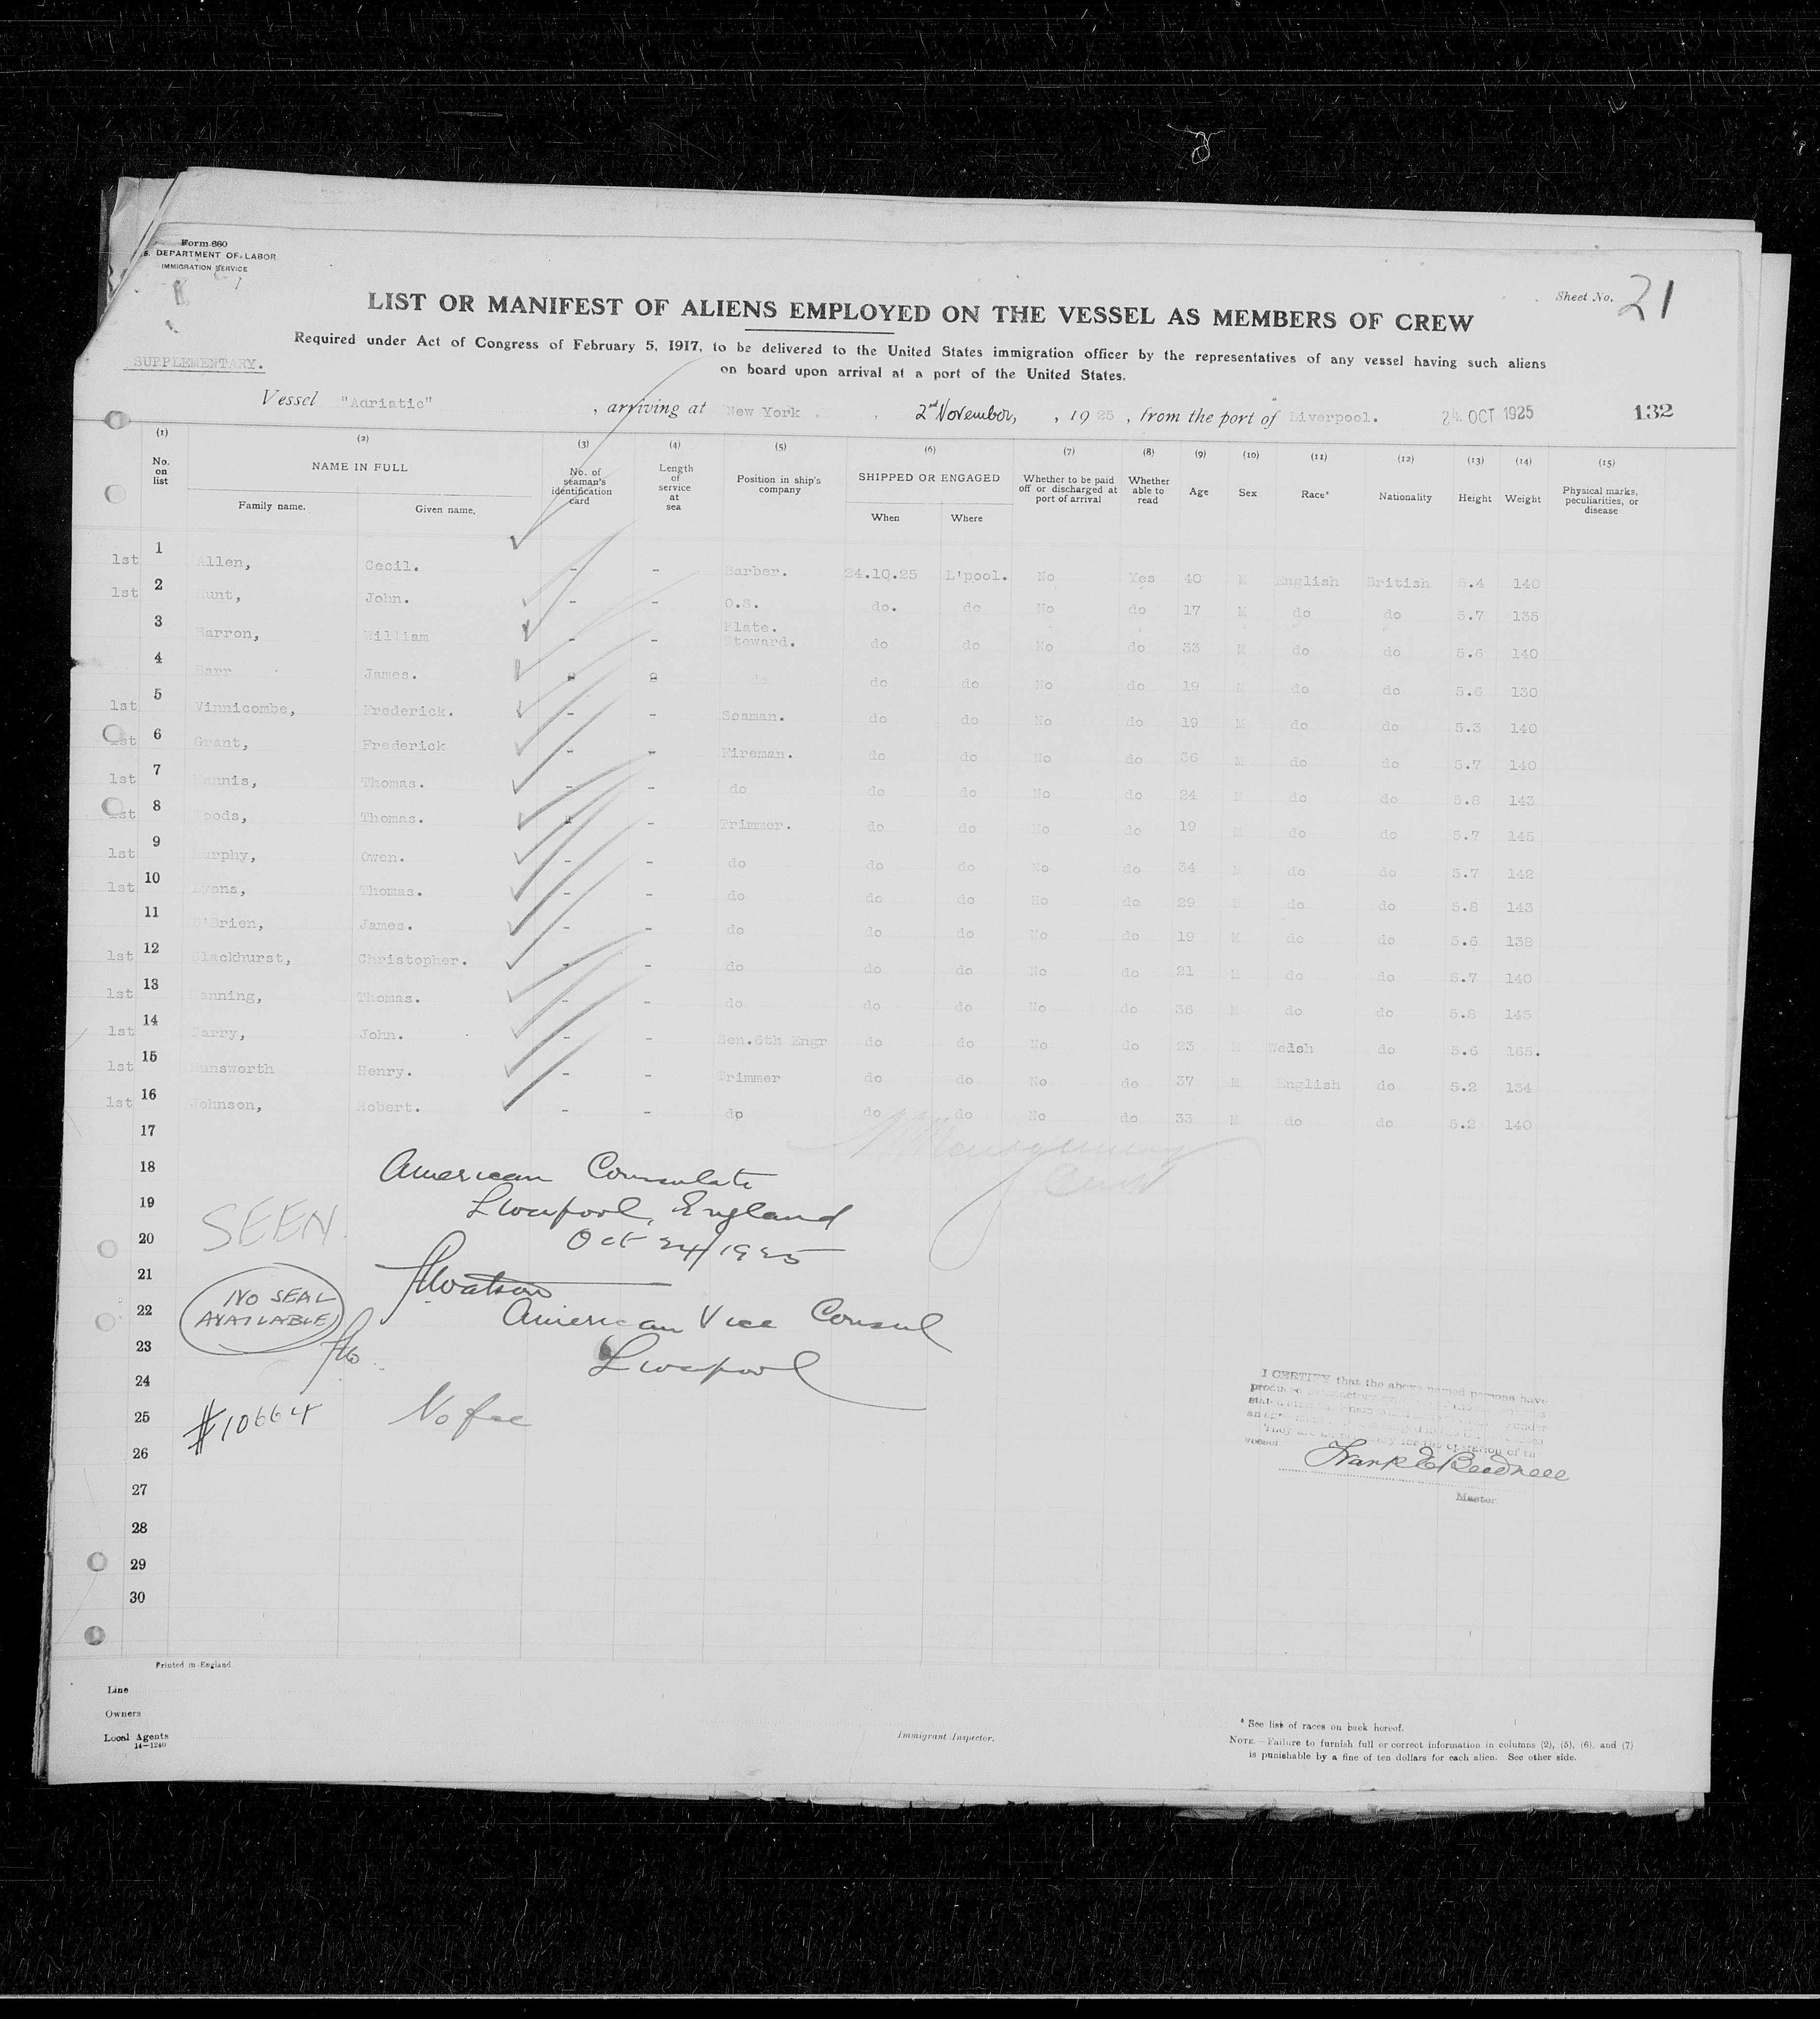 Form 680
S. DEPARTMENT OF LABOR
IMMIGRATION SERVICE
Sheet No. 21
LIST OR MANIFEST OF ALIENS EMPLOYED ON THE VESSEL AS MEMBERS OF CREW
Required under Act of Congress of February 5, 1917, to be delivered to the United States immigration officer by the representatives of any vessel having such aliens
on board upon arrival at a port of the United States.
SUPPLEMENTARY.
Vessel "Adriatic", arriving at New York, 2nd November, , 1925, from the port of Liverpool. 24 OCT 1925 132
(1) (2) (3) (4) (5) (6) (7) (8) (9) (10) (11) (12) (13) (14) (15)
No. on list NAME IN FULL No. of seaman's identification card Length of service at sea Position in ship's company SHIPPED OR ENGAGED Whether to be paid off or discharged at port of arrival Whether able to read Age Sex Race* Nationality Height Weight Physical marks, peculiarities, or disease
Family name. Given name. When Where
1st 1 Allen, Cecil. - - Barber. 24.10.25 L'pool. No Yes 40 M English British 5.4 140
1st 2 Hunt, John. - - O.S. do. do No do 17 M do do 5.7 135
3 Barron, William - - Plate. Steward. do do No do 33 M do do 5.6 140
4 Barr James. do do do No do 19 M do do 5.6 130
1st 5 Vinnicombe, Frederick. - - Seaman. do do No do 19 M do do 5.3 140
1st 6 Grant, Frederick - - Fireman. do do No do 36 M do do 5.7 140
1st 7 Mannis, Thomas. - - do do do No do 24 M do do 5.8 143
1st 8 Woods, Thomas. - Trimmer. do do No do 19 M do do 5.7 145
1st 9 Murphy, Owen. - - do do do No do 34 M do do 5.7 142
1st 10 Lyons, Thomas. - - do do do No do 29 M do do 5.8 143
11 O'Brien, James. - - do do do No do 19 M do do 5.6 138
1st 12 Blackhurst, Christopher. - - do do do No do 21 M do do 5.7 140
1st 13 Manning, Thomas. - - do do do No do 36 M do do 5.8 145
1st 14 Parry, John. - - Sen.6th Engr do do No do 23 M Welsh do 5.6 165.
1st 15 Hunsworth Henry. - - Trimmer do do No do 37 M English do 5.2 134
1st 16 Johnson, Robert. - - do do do No do 33 M do do 5.2 140
17
18 American Consulate
19 Liverpool, England
SEEN.
20 Oct 24/1925
21 Watson
NO SEAL
AVAILABLE
22 American Vice Consul
23 Liverpool
24
25 #10664 No fee
26
27
28
29
30
I CERTIFY that the above named persons have
vessel.
Frank E Beadnell
Master.
Printed in England.
Line
Owners
Local Agents
14-1240
Immigrant Inspector.
* See list of races on back hereof.
NOTE.—Failure to furnish full or correct information in columns (2), (5), (6), and (7)
is punishable by a fine of ten dollars for each alien. See other side.